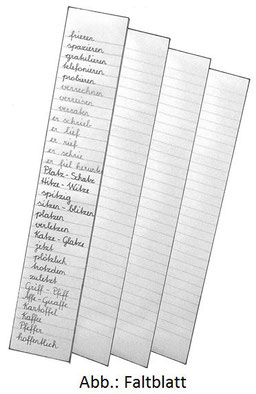 frieren
spazieren
gratulieren
telefonieren
probieren
verrechnen
verreisen
verraten
er schrieb
er lief
er rief
er schrie
er fiel herunter
Platz - Schatz
Hitze - Witze
spitzig
sitzen - blitzen
platzen
verletzen
Katze - Glatze
jetzt
plötzlich
trotzdem
zuletzt
Griff - Pfiff
Affe - Giraffe
Kartoffel
Kaffee
Pfeffer
hoffentlich
Abb.: Faltblatt